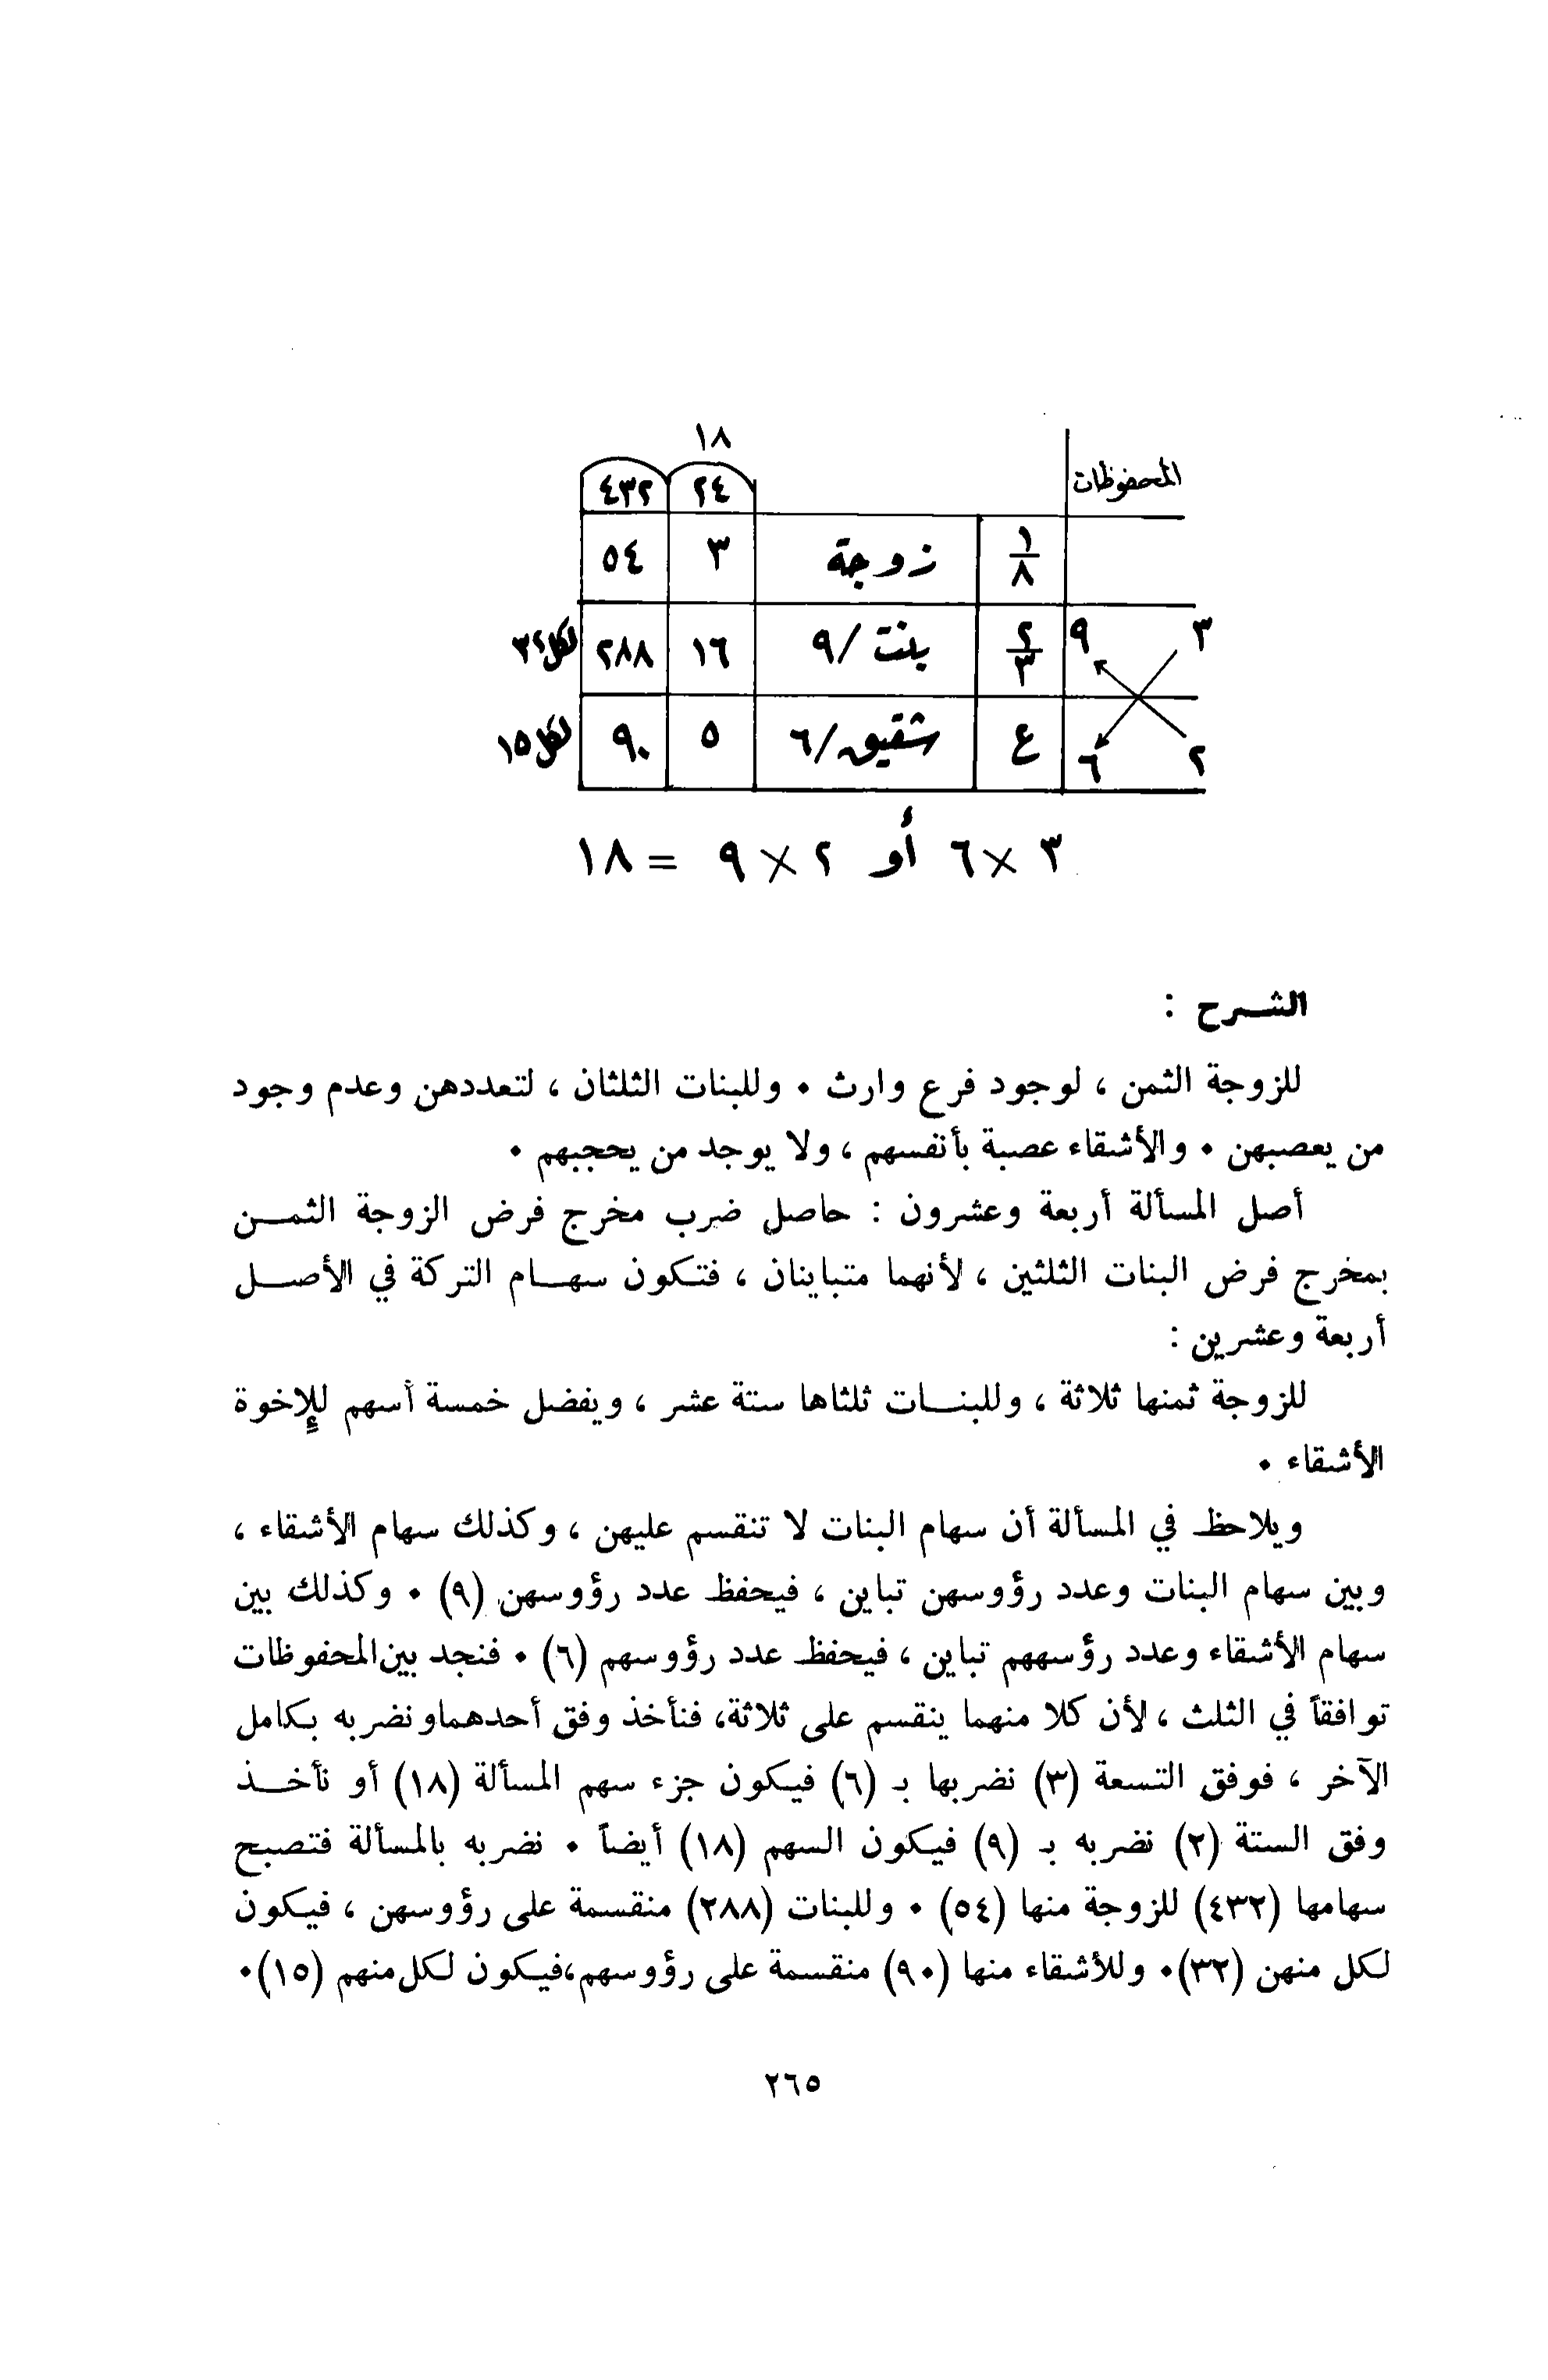 ١٨
المحفوظات ٢٤ ٤٣٢
١/٨ زوجة ٣ ٥٤
٣ ٩ ٢/٣ بنت /٩ ١٦ ٢٨٨ لكل ٣٢
٢ ٦ ع شقيق/٦ ٥ ٩٠ لكل ١٥
٣ × ٦ أو ٢ × ٩ = ١٨
الشـرح :
للزوجة الثمن ، لوجود فرع وارث . وللبنات الثلثان ، لتعددهن وعدم وجود
من يعصبهن . والأشقاء عصبة بأنفسهم ، ولا يوجد من يحجبهم .
أصل المسألة أربعة وعشرون : حاصل ضرب مخرج فرض الزوجة الثمـن
بمخرج فرض البنات الثلثين ، لأنهما متباينان ، فتكون سهـام التركة في الأصـل
أربعة وعشرين :
للزوجة ثمنها ثلاثة ، وللبنـات ثلثاها ستة عشر ، ويفضل خمسة أسهم للإخوة
الأشقاء .
ويلاحظ في المسألة أن سهام البنات لا تنقسم عليهن ، وكذلك سهام الأشقاء ،
وبين سهام البنات وعدد رؤوسهن تباين ، فيحفظ عدد رؤوسهن (٩) . وكذلك بين
سهام الأشقاء وعدد رؤسههم تباين ، فيحفظ عدد رؤوسهم (٦) . فنجد بين المحفوظات
توافقاً في الثلث ، لأن كلا منهما ينقسم على ثلاثة، فنأخذ وفق أحدهما ونضربه بكامل
الآخر ، فوفق التسعة (٣) نضربها بـ (٦) فيكون جزء سهم المسألة (١٨) أو نأخـذ
وفق الستة (٢) نضربه بـ (٩) فيكون السهم (١٨) أيضاً . نضربه بالمسألة فتصبح
سهامها (٤٣٢) للزوجة منها (٥٤) . وللبنات (٢٨٨) منقسمة على رؤوسهن ، فيكون
لكل منهن (٣٢). وللأشقاء منها (٩٠) منقسمة على رؤوسهم،فيكون لكل منهم (١٥).
٢٦٥